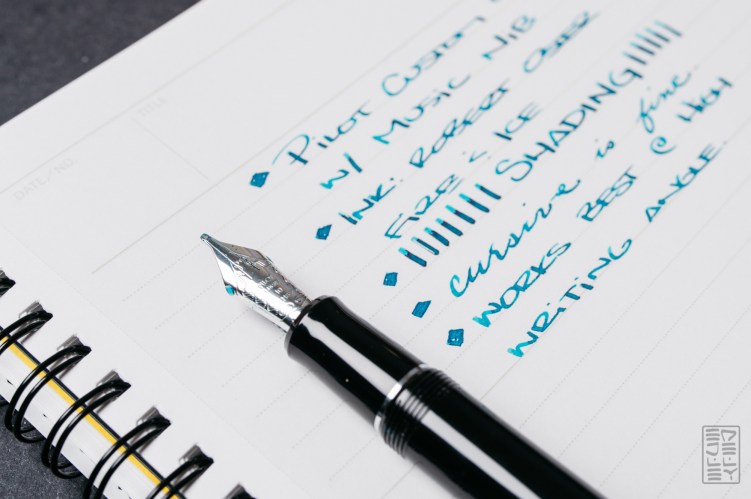 DATE/NO.
TITLE
◆ PILOT CUSTOM
W/ MUSIC NIB
◆ INK: ROBERT OSTER
FIRE & ICE
◆ SHADING
◆ cursive is fine.
◆ WORKS BEST @ HIGH
WRITING ANGLE.